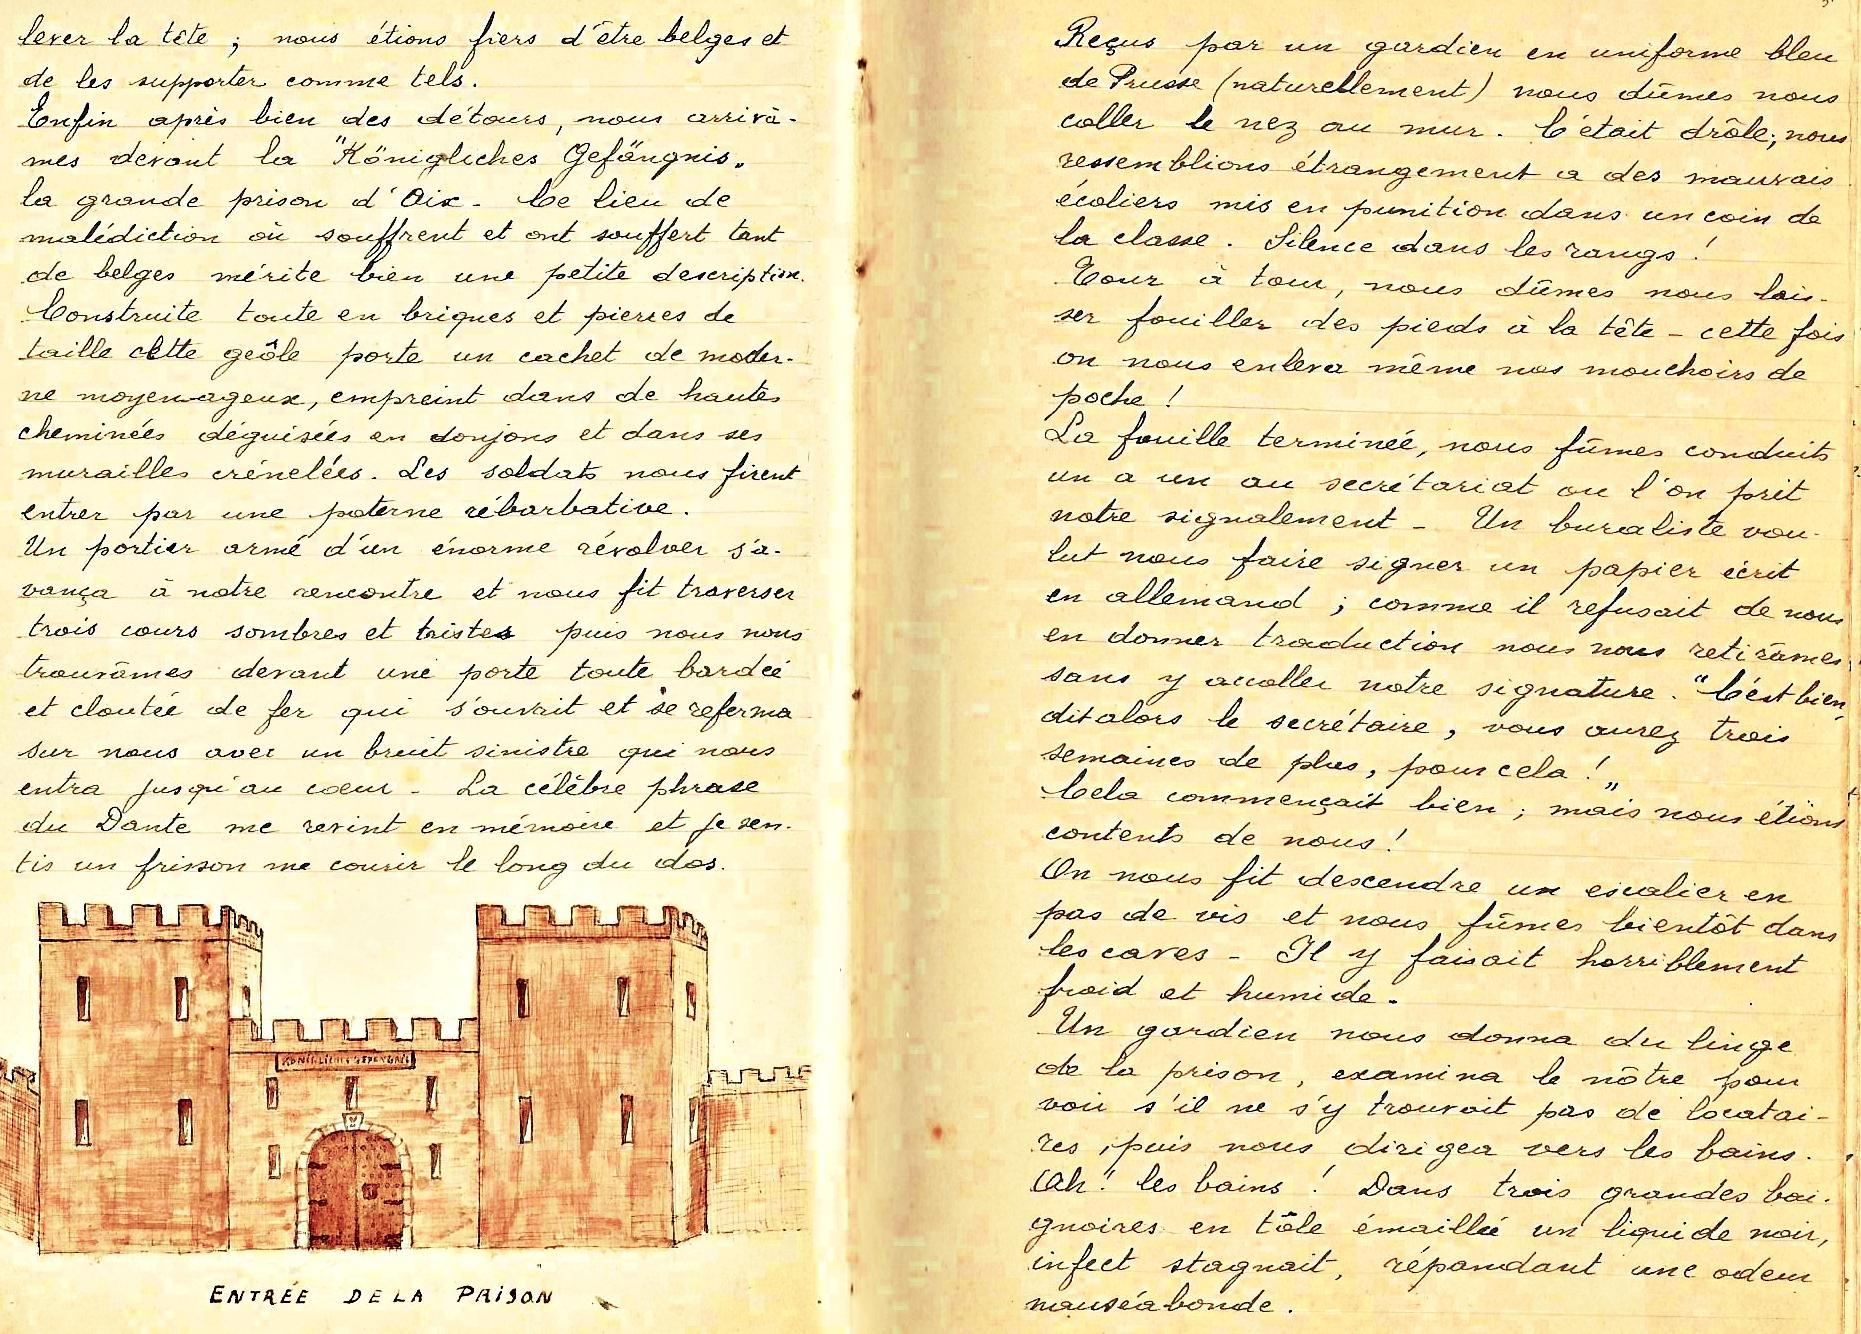 lever la tête ; nous étions fiers d'être belges et
de les supporter comme tels.
Enfin après bien des détours, nous arrivâ-
mes devant la "Königliches Gefängnis„
la grande prison d'Aix - Ce lieu de
malédiction où souffrent et ont souffert tant
de belges mérite bien une petite description.
Construite toute en briques et pierres de
taille cette geôle porte un cachet de moder-
ne moyen-ageux, empreint dans de hautes
cheminées déguisées en donjons et dans ses
murailles crénelées. Les soldats nous firent
entrer par une poterne rébarbative.
Un portier armé d'un énorme révolver s'a-
vança à notre rencontre et nous fit traverser
trois cours sombres et tristes puis nous nous
trouvâmes devant une porte toute bardée
et cloutée de fer qui s'ouvrit et se referma
sur nous avec un bruit sinistre qui nous
entra jusqu'au cœur - La célèbre phrase
du Dante me revint en mémoire et je sen-
tis un frisson me courir le long du dos.
KÖNIGLICHES GEFÄNGNIS
ENTRÉE DE LA PRISON
Reçus par un gardien en uniforme bleu
de Prusse (naturellement) nous dûmes nous
coller le nez au mur. C'était drôle; nous
ressemblions étrangement a des mauvais
écoliers mis en punition dans un coin de
la classe. Silence dans les rangs !
Tour à tour, nous dûmes nous lais-
ser fouiller des pieds à la tête - cette fois
on nous enleva même nos mouchoirs de
poche !
La fouille terminée, nous fûmes conduits
un a un au secrétariat ou l'on prit
notre signalement - Un buraliste vou-
lut nous faire signer un papier écrit
en allemand ; comme il refusait de nous
en donner traduction nous nous retirâmes
sans y accoller notre signature. "C'est bien,
dit alors le secrétaire, vous aurez trois
semaines de plus, pour cela !„
Cela commençait bien ; mais nous étions
contents de nous !
On nous fit descendre un escalier en
pas de vis et nous fûmes bientôt dans
les caves - Il y faisait horriblement
froid et humide.
Un gardien nous donna du linge
de la prison, examina le nôtre pour
voir s'il ne s'y trouvait pas de locatai-
res, puis nous dirigea vers les bains.
Ah ! les bains ! Dans trois grandes bai-
gnoires en tôle émaillée un liquide noir,
infect stagnait, répandant une odeur
nauséabonde.